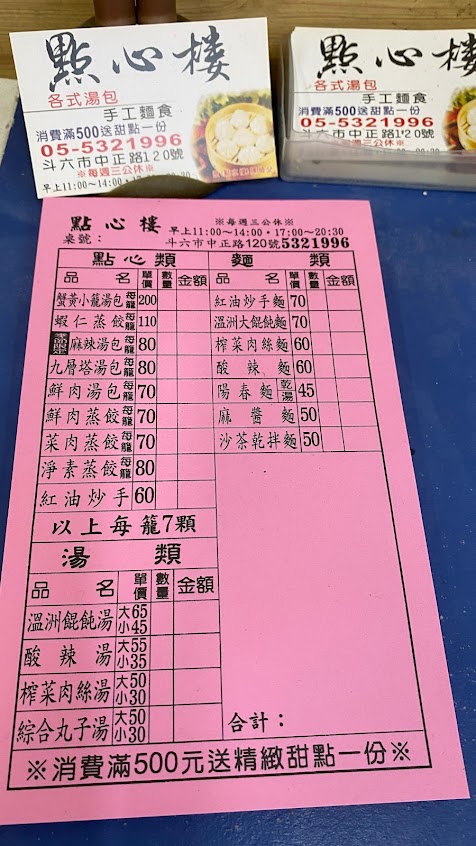 點心樓
各式湯包
手工麵食
消費滿500送甜點一份
05-5321996
斗六市中正路120號
※每週三公休※
早上11:00～14:00
點心樓
各式湯包
手工麵食
消費滿500送甜點一份
05-5321996
斗六市中正路120號
※每週三公休※
點心樓 ※每週三公休※
早上11:00～14:00・17:00～20:30
桌號： 斗六市中正路120號5321996
點心類 麵類
品名 單價 數量 金額 品名 單價 數量 金額
蟹黃小籠湯包 每籠 200 紅油炒手麵 70
蝦仁蒸餃 每籠 110 溫洲大餛飩麵 70
麻辣湯包 每籠 80 榨菜肉絲麵 60
九層塔湯包 每籠 80 酸辣麵 60
鮮肉湯包 每籠 70 陽春麵 乾湯 45
鮮肉蒸餃 每籠 70 麻醬麵 50
菜肉蒸餃 每籠 70 沙茶乾拌麵 50
淨素蒸餃 每籠 80
紅油炒手 60
以上每籠7顆
湯類
品名 單價 數量 金額
溫洲餛飩湯 大65 小45
酸辣湯 大55 小35
榨菜肉絲湯 大50 小30
綜合丸子湯 大50 小30
合計：
※消費滿500元送精緻甜點一份※